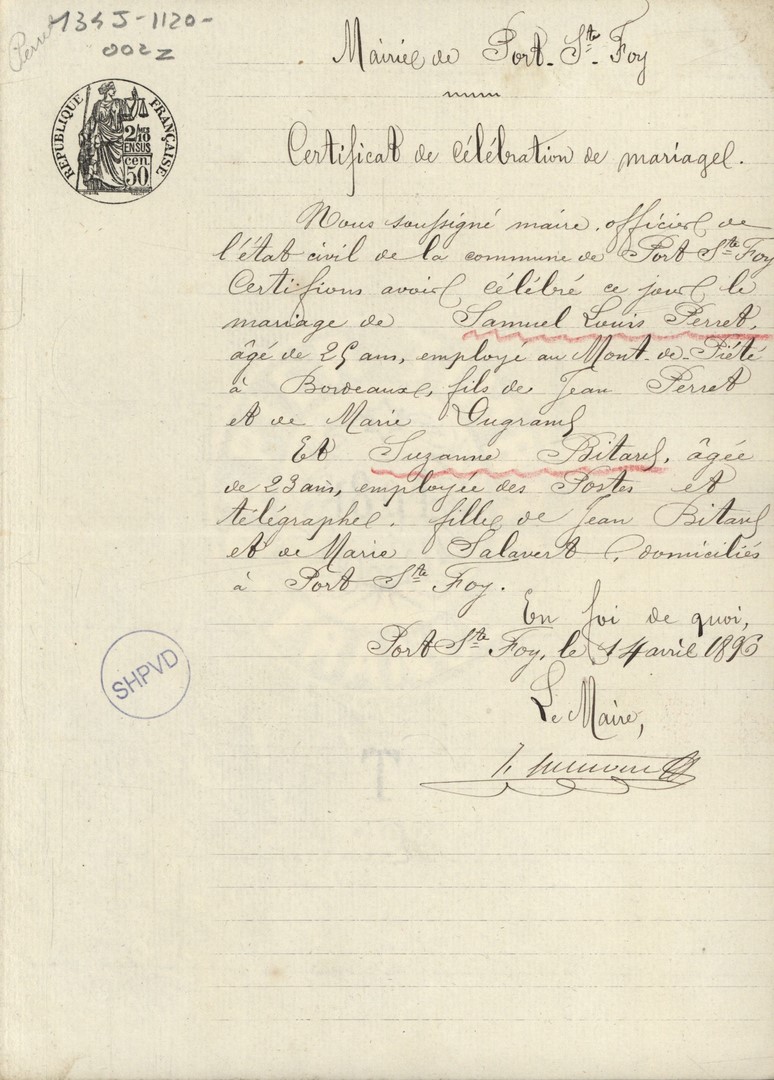 Perret
134 J-1120-
002 2
Mairie de Port-Ste-Foy
RÉPUBLIQUE FRANÇAISE
2/10
EN SUS
50 cen.
Certificat de célébration de mariage.
Nous soussigné maire, officier de
l'état civil de la commune de Port Ste Foy
Certifions avoir célébré ce jour le
mariage de Samuel Louis Perret,
âgé de 25 ans, employé au Mont-de-Piété
à Bordeaux, fils de Jean Perret
et de Marie
Et Suzanne Bitard, âgée
de 23 ans, employée des Postes et
télégraphe, fille de Jean Bitard
et de Marie Salavert, domiciliés
à Port Ste Foy.
En foi de quoi,
Port Ste Foy, le 14 avril 1896
SHPVD
Le Maire,